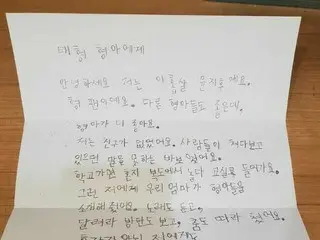 태형 형아에게
안녕하세요 저는 아홉살 윤지후에요.
형 팬이에요. 다른 형아들도 좋은데,
형아가 더 좋아요.
저는 친구가 없었어요. 사람들이 쳐다보고
있으면 말을 못하는 바보였어요.
학교가면 혼자 복도에서 놀다 교실로 들어가요.
그런 저에게 우리 엄마가 형아들을
소개해줬어요. 노래도 듣고,
달려라 방탄도 보고, 춤도 따라 췄어요.